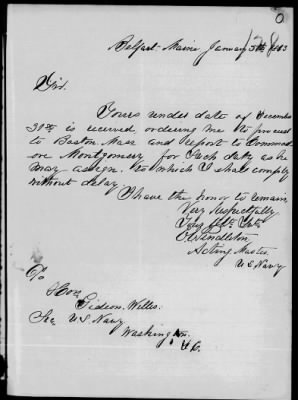 Belfast Maine January 3d 1863
Sir.
Yours under date of December
30th is received, ordering me to proceed
to Boston Mass and report to Commod
ore Montgomery for Such duty as he
may assign. to which I shall comply
without delay
I have the honor to remain
Very Respectfully
Your Obt. Svt.
Pendleton
Acting Master
U.S. Navy
To
Hon
Gideon Welles.
Sec U.S. Navy
Washington